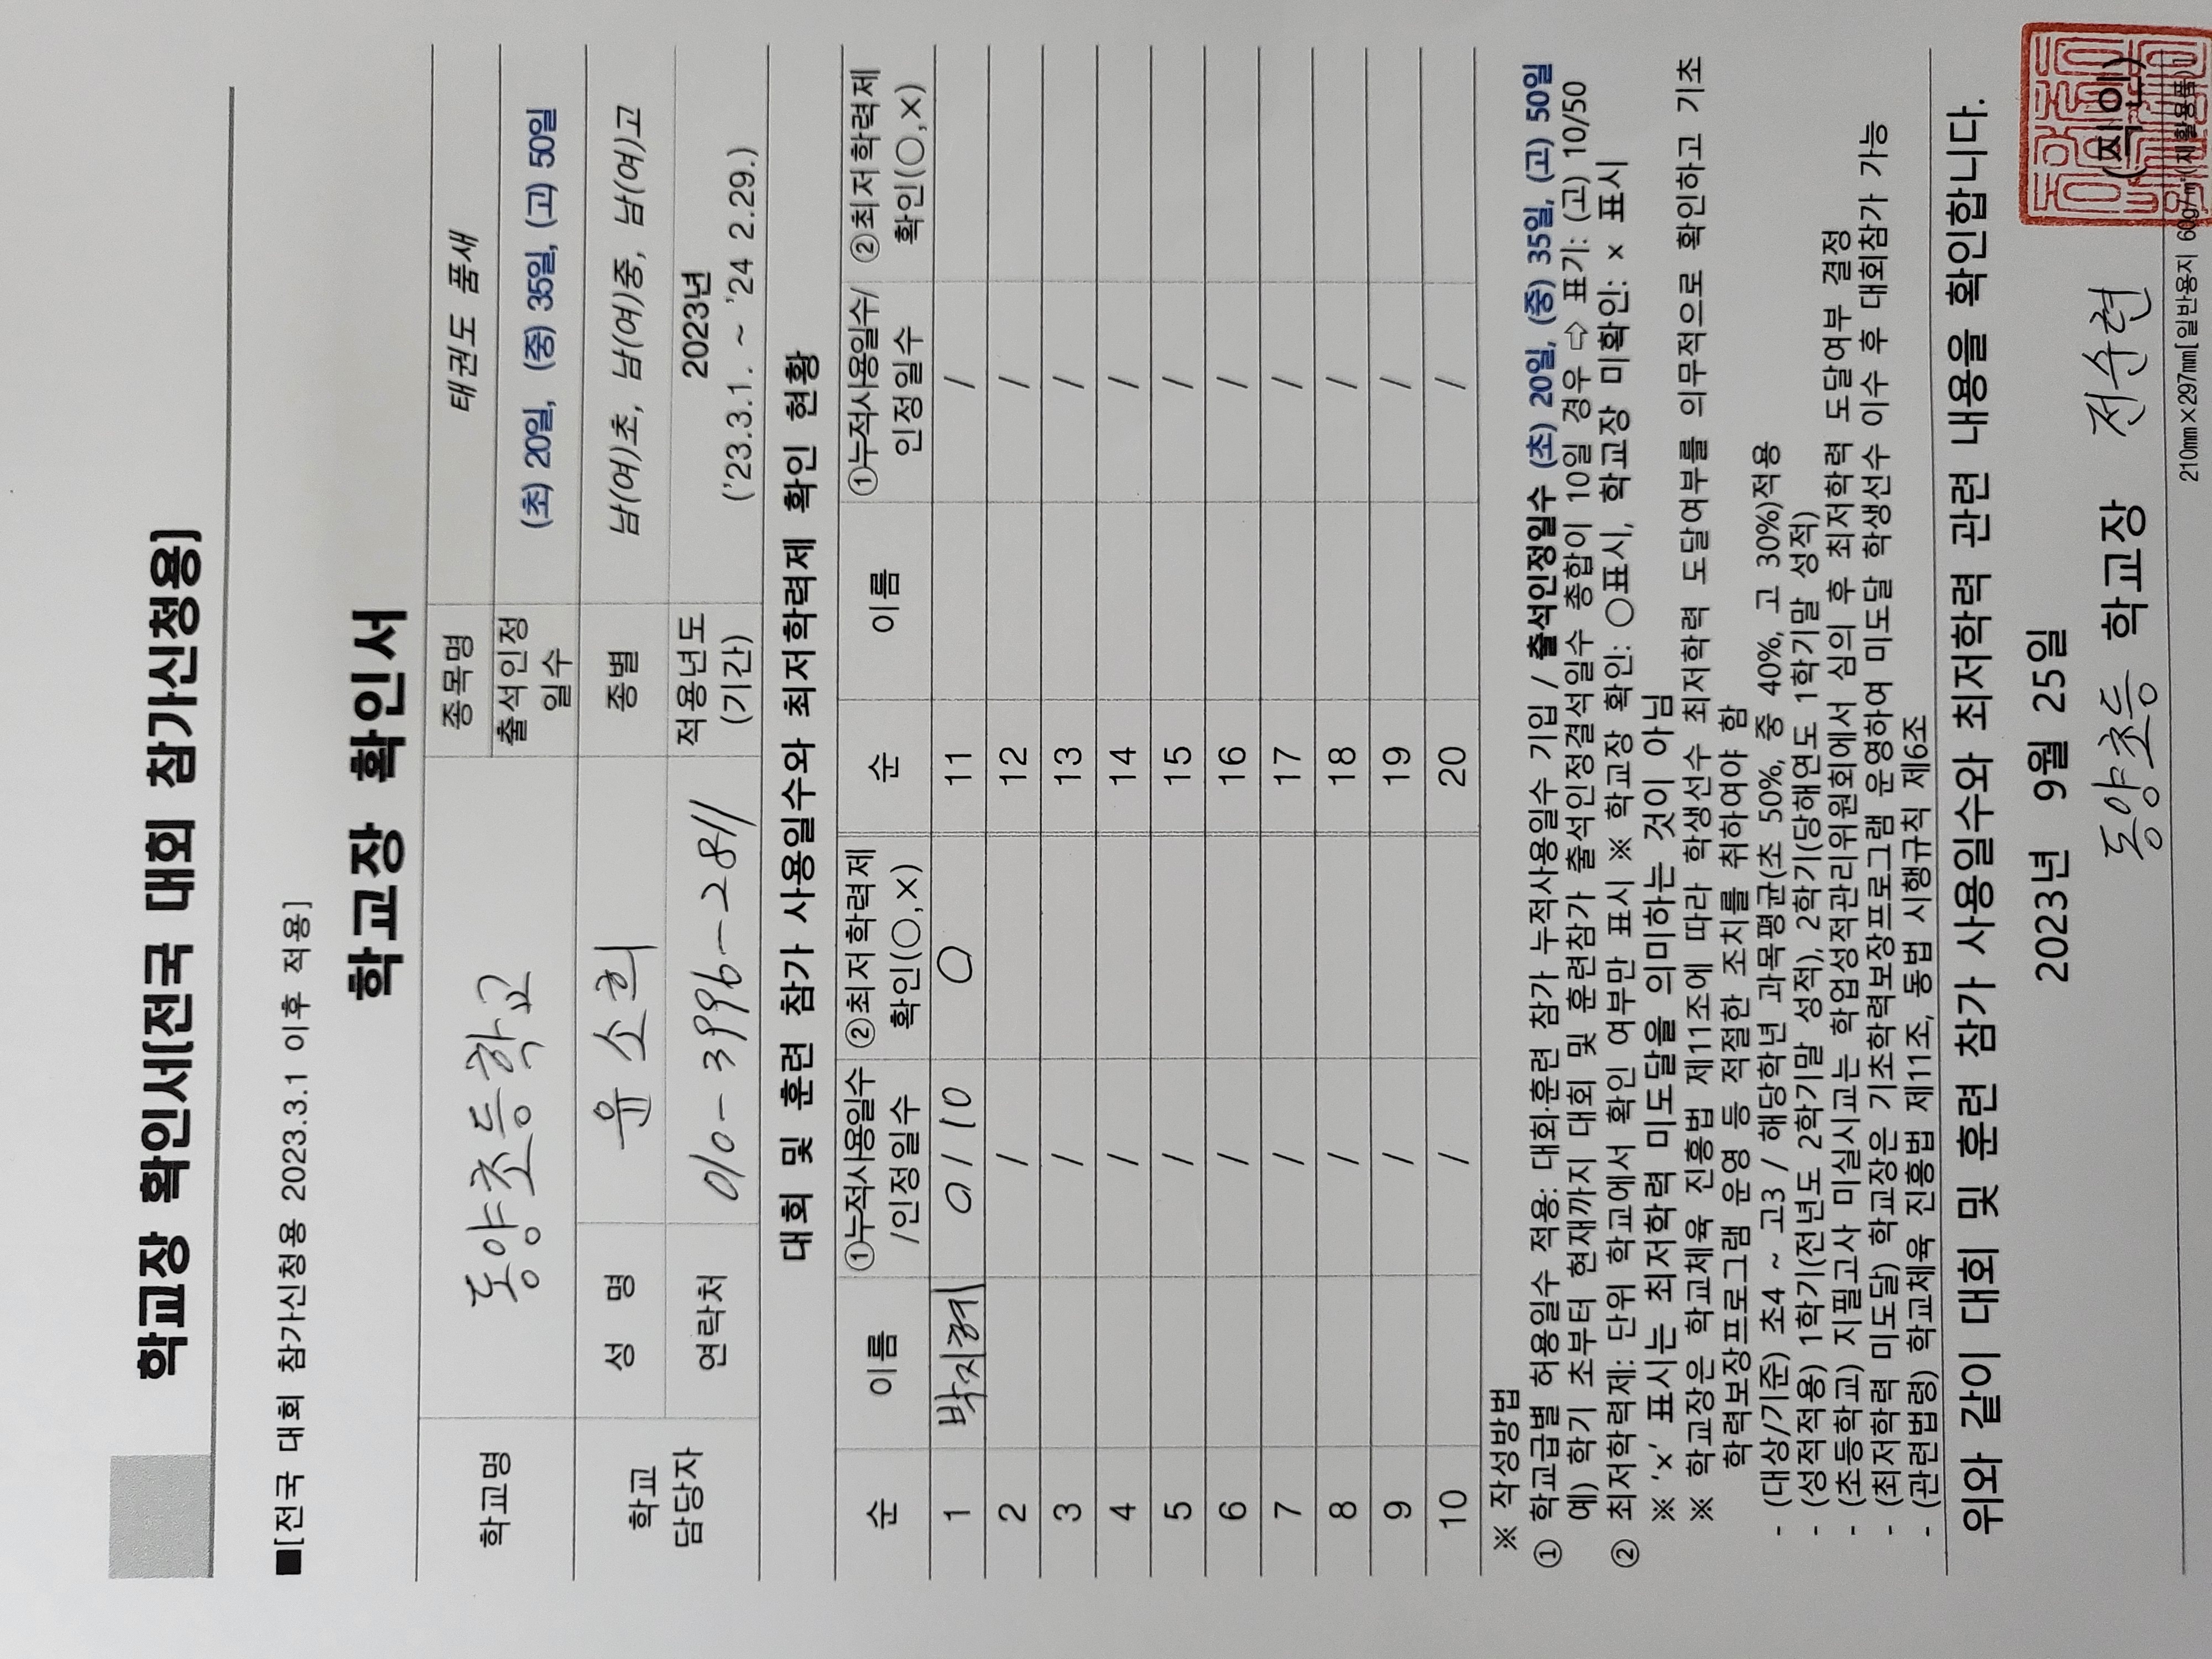 학교장 확인서[전국 대회 참가신청용]
■[전국 대회 참가신청용 2023.3.1 이후 적용]
학교장 확인서
학교명 동양초등학교 종목명 태권도 품새
출석인정 일수 (초) 20일, (중) 35일, (고) 50일
학교 담당자 성 명 유소희 종별 남(여)초, 남(여)중, 남(여)고
연락처 010-3996-2811 적용년도 (기간) 2023년 ('23.3.1. ~ '24 2.29.)
대회 및 훈련 참가 사용일수와 최저학력제 확인 현황
순 이름 ①누적사용일수/인정일수 ②최저학력제 확인(○,×) 순 이름 ①누적사용일수/인정일수 ②최저학력제 확인(○,×)
1 박지혜 0/10 ○ 11 /
2 / 12 /
3 / 13 /
4 / 14 /
5 / 15 /
6 / 16 /
7 / 17 /
8 / 18 /
9 / 19 /
10 / 20 /
※ 작성방법
① 학교급별 허용일수 적용: 대회·훈련 참가 누적사용일수 기입 / 출석인정일수 (초) 20일, (중) 35일, (고) 50일
예) 학기 초부터 현재까지 대회 및 훈련참가 출석인정결석일수 총합이 10일 경우 ⇨ 표기: (고) 10/50
② 최저학력제: 단위 학교에서 확인 여부만 표시 ※ 학교장 확인: ○표시, 학교장 미확인: × 표시
※ '×' 표시는 최저학력 미도달을 의미하는 것이 아님
※ 학교장은 학교체육 진흥법 제11조에 따라 학생선수 최저학력 도달여부를 의무적으로 확인하고 기초
학력보장프로그램 운영 등 적절한 조치를 취하여야 함
- (대상/기준) 초4 ~ 고3 / 해당학년 과목평균(초 50%, 중 40%, 고 30%)적용
- (성적적용) 1학기(전년도 2학기말 성적), 2학기(당해연도 1학기말 성적)
- (초등학교) 지필고사 미실시교는 학업성적관리위원회에서 심의 후 최저학력 도달여부 결정
- (최저학력 미도달) 학교장은 기초학력보장프로그램 운영하여 미도달 학생선수 이수 후 대회참가 가능
- (관련법령) 학교체육 진흥법 제11조, 동법 시행규칙 제6조
위와 같이 대회 및 훈련 참가 사용일수와 최저학력 관련 내용을 확인합니다.
2023년 9월 25일
동양초등 학교장 전수현 (직인)
210mm×297mm[일반용지 60g/㎡(재활용품)]